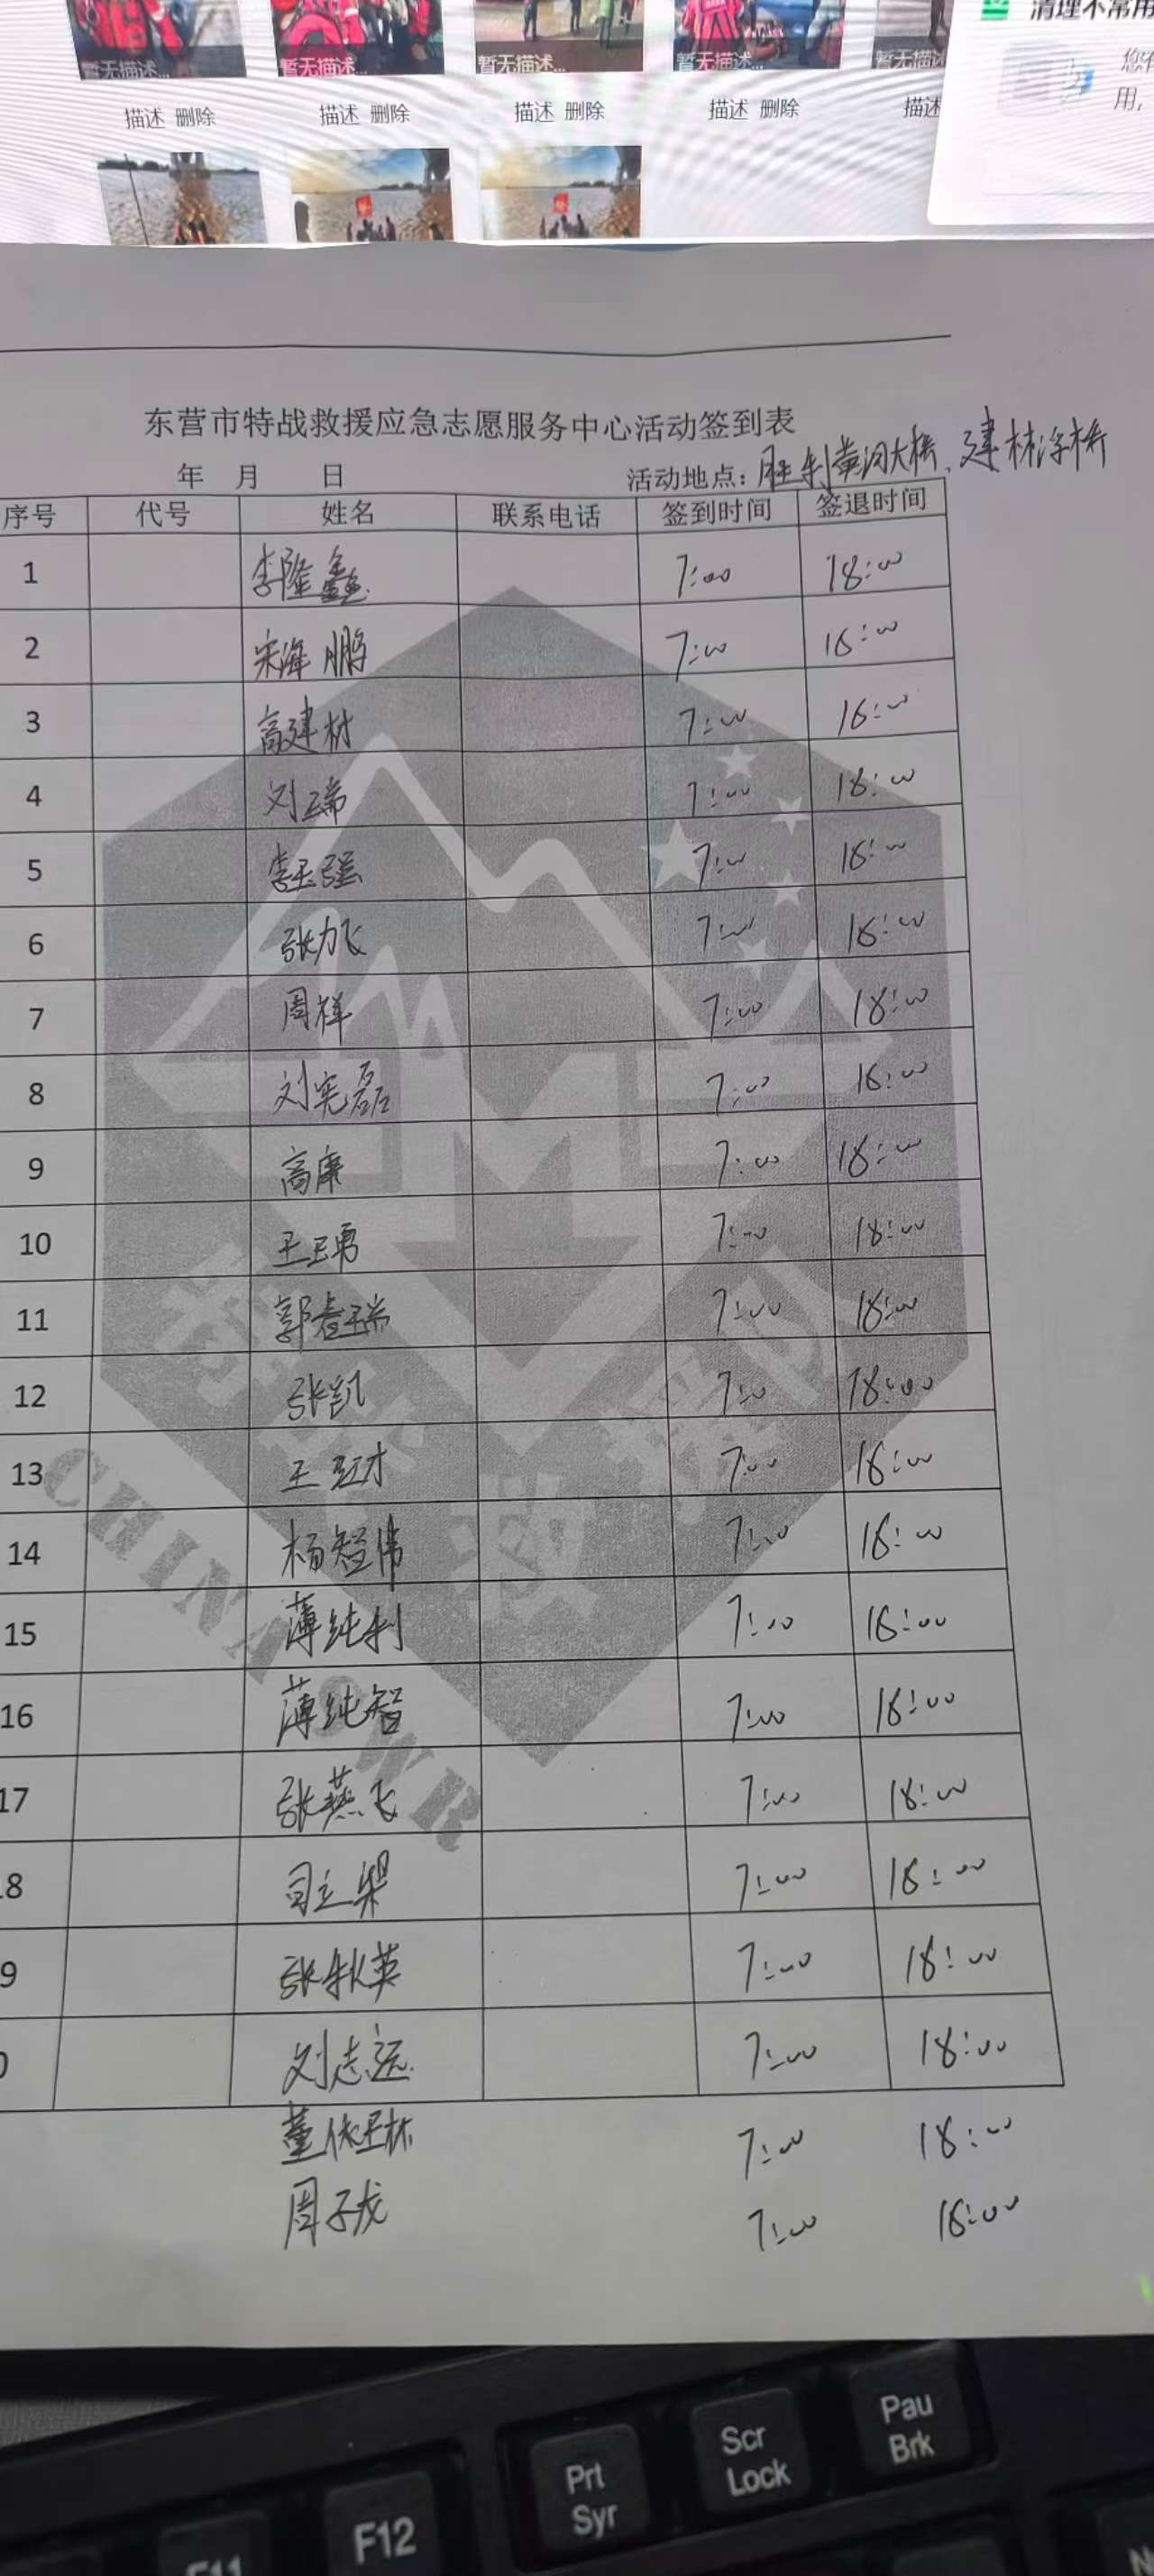 清理不常用
暂无描述... 暂无描述... 暂无描述... 暂无描述... 暂无描述
用,
描述 删除 描述 删除 描述 删除 描述 删除 描述
东营市特战救援应急志愿服务中心活动签到表
年 月 日 活动地点：胜利黄河大桥、建林浮桥
序号 代号 姓名 联系电话 签到时间 签退时间
1 李隆鑫 7:00 18:00
2 宋海鹏 7:00 18:00
3 高建材 7:00 18:00
4 刘瑞 7:00 18:00
5 李玉强 7:00 18:00
6 张力飞 7:00 18:00
7 周祥 7:00 18:00
8 刘宪磊 7:00 18:00
9 高康 7:00 18:00
10 王卫勇 7:00 18:00
11 郭春瑞 7:00 18:00
12 张凯 7:00 18:00
13 王红才 7:00 18:00
14 杨智伟 7:00 18:00
15 薄纯利 7:00 18:00
16 薄纯智 7:00 18:00
17 张燕飞 7:00 18:00
8 司立梁 7:00 18:00
9 张秋英 7:00 18:00
0 刘志远 7:00 18:00
董依林 7:00 18:00
周子龙 7:00 18:00
CHINA SWR
Prt Syr
Scr Lock
Pau Brk
F11
F12